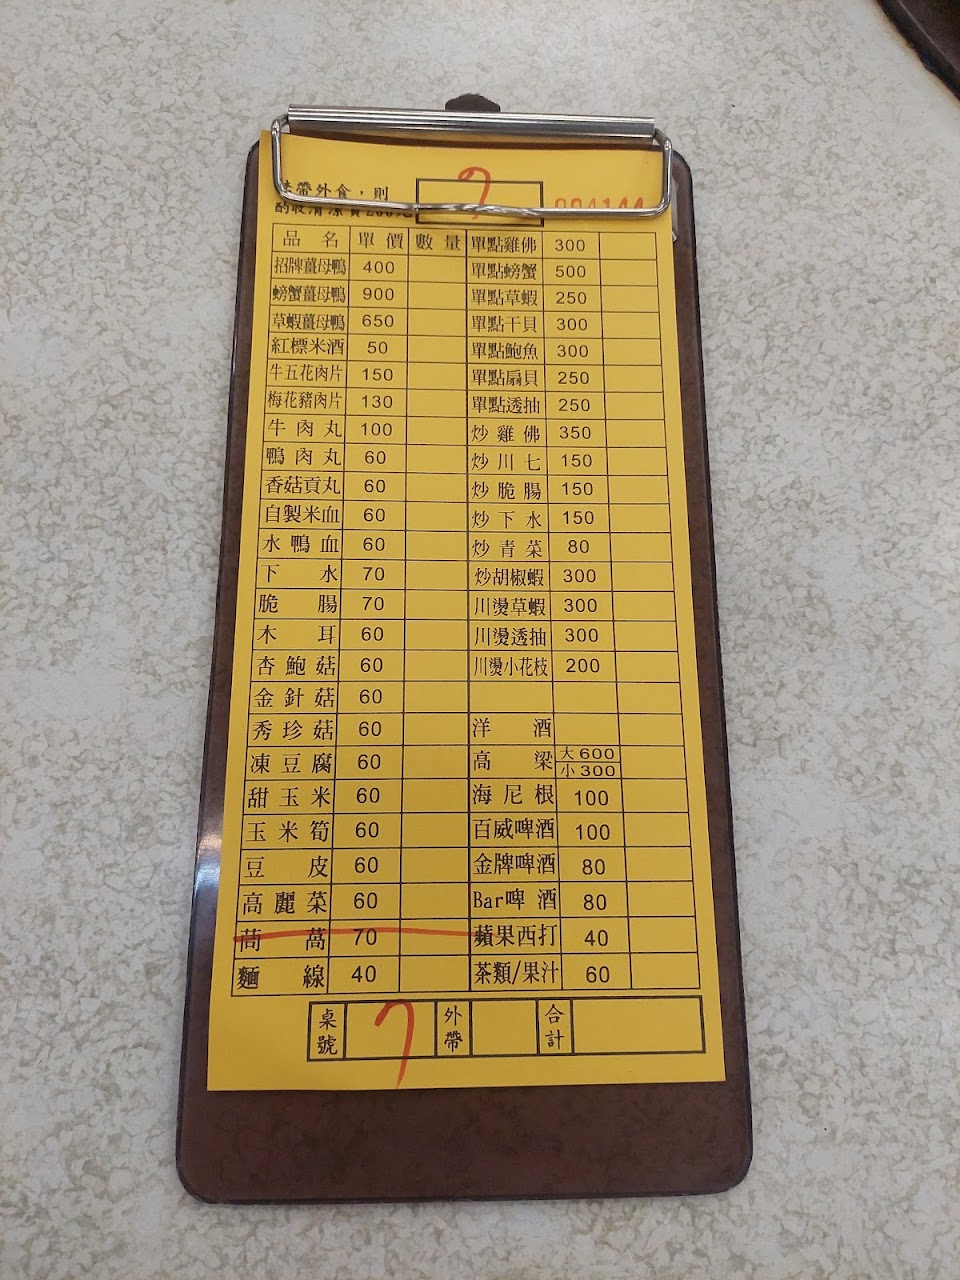 帶外食，則
7
品名 單價 數量
招牌薑母鴨 400
螃蟹薑母鴨 900
草蝦薑母鴨 650
紅標米酒 50
牛五花肉片 150
梅花豬肉片 130
牛肉丸 100
鴨肉丸 60
香菇貢丸 60
自製米血 60
水鴨血 60
下水 70
脆腸 70
木耳 60
杏鮑菇 60
金針菇 60
秀珍菇 60
凍豆腐 60
甜玉米 60
玉米筍 60
豆皮 60
高麗菜 60
茼萵 70
麵線 40
單點雞佛 300
單點螃蟹 500
單點草蝦 250
單點干貝 300
單點鮑魚 300
單點扇貝 250
單點透抽 250
炒雞佛 350
炒川七 150
炒脆腸 150
炒下水 150
炒青菜 80
炒胡椒蝦 300
川燙草蝦 300
川燙透抽 300
川燙小花枝 200
洋酒
高梁 大600 小300
海尼根 100
百威啤酒 100
金牌啤酒 80
Bar啤酒 80
蘋果西打 40
茶類/果汁 60
桌號 7 外帶 合計